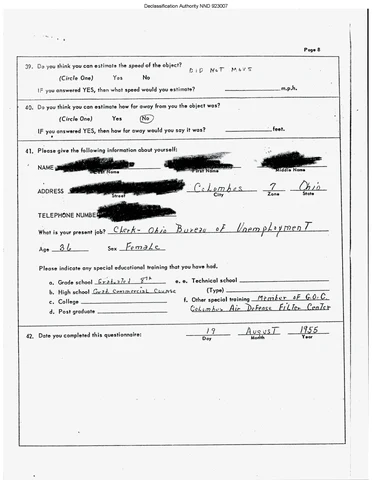 Declassification Authority NND 923007
Page 8
39. Do you think you can estimate the speed of the object? DID NOT MOVE
(Circle One) Yes No
IF you answered YES, then what speed would you estimate? m.p.h.
40. Do you think you can estimate how far away from you the object was?
(Circle One) Yes No
IF you answered YES, then how far away would you say it was? feet.
41. Please give the following information about yourself:
NAME
Last Name First Name Middle Name
ADDRESS Columbus 7 Ohio
Street City Zone State
TELEPHONE NUMBER
What is your present job? Clerk- Ohio Bureau of Unemployment
Age 36 Sex Female
Please indicate any special educational training that you have had.
a. Grade school Graduated 8th e. Technical school
b. High school Commercial Course (Type)
c. College f. Other special training Member of G.O.C.
d. Post graduate Columbus Air Defense Filter Center
42. Date you completed this questionnaire: 19 August 1955
Day Month Year